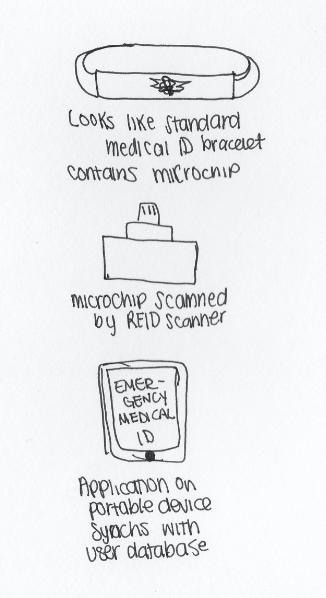 Looks like standard
medical ID bracelet
contains microchip
microchip scanned
by RFID scanner
EMER-
GENCY
MEDICAL
ID
Application on
portable device
synchs with
user database